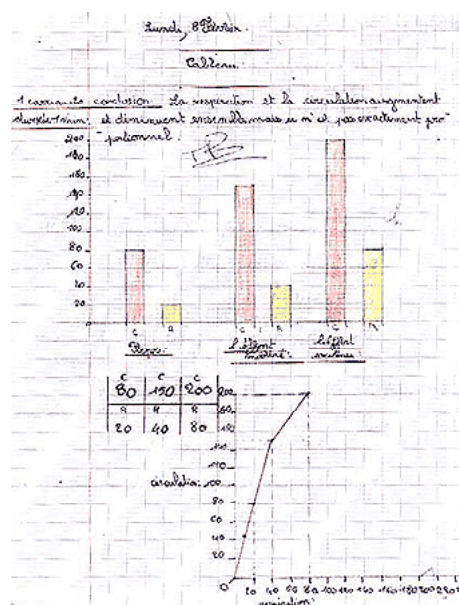 Lundi, 8 Février.
Tableau.
1 carreau = conclusion. La respiration et la circulation augmentent
et diminuent ensemble mais ce n'est pas exactement pro-
portionnel.
200
180
160
140
120
100
80
60
40
20
C R C R C R
Repos. L'effort L'effort
C C C
80 150 200
R R R
20 40 80
200
180
160
140
120
circulation: 100
80
60
40
20
0 20 40 60 80 100 120 140 160 180 200 220
respiration: